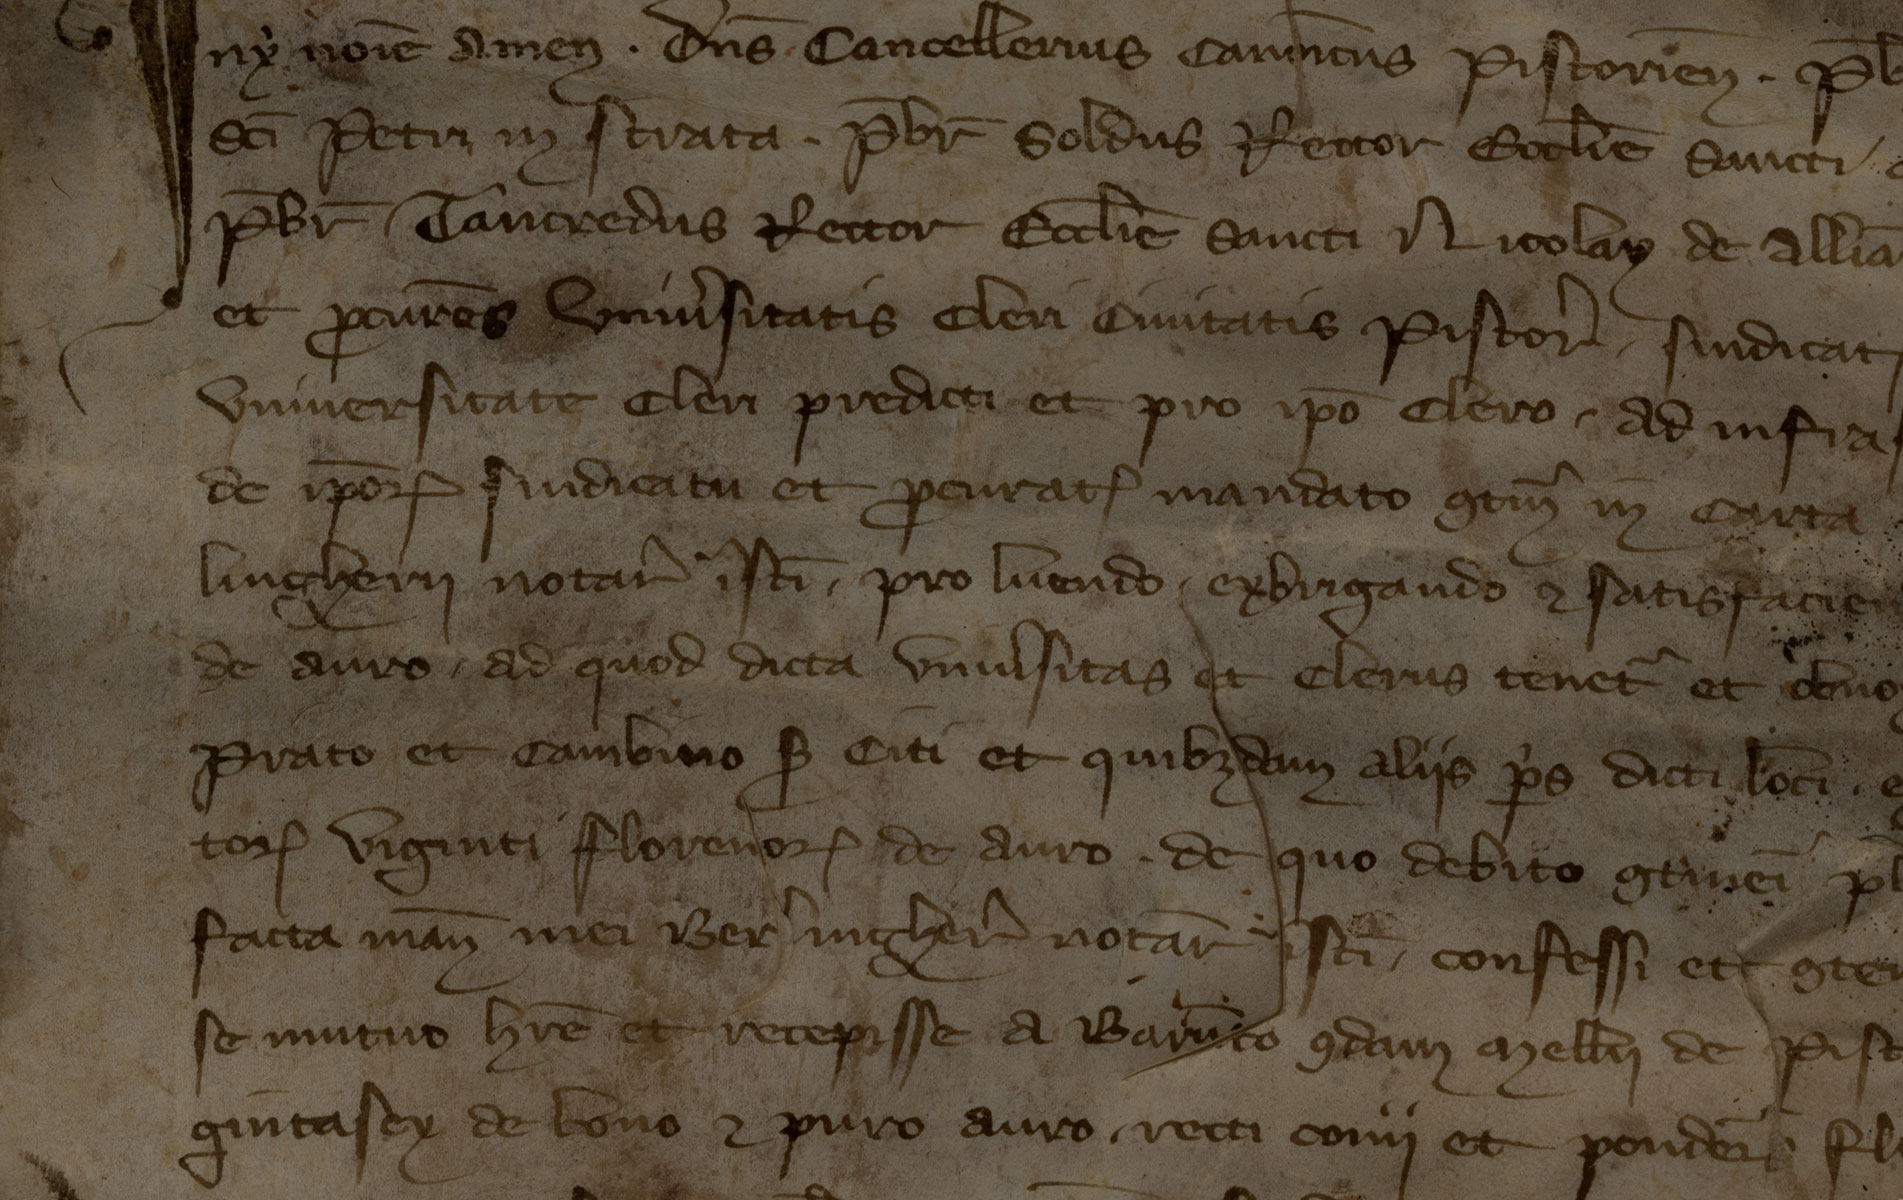 Ny noīe Amen . Dn̄s Cancellerius canonicus Pistorien̄ . P̄b
Sc̄i Petri in strata . p̄br̄ Soldus Rector Eccl̄ie Sancti
p̄br̄ Tancredus Rector Eccl̄ie Sancti Nicolay de
et ꝓcur̄es Univ̾sitatis Cleri Civitatis Pistor̾ , sindicat
Universitate Cleri predicti et pro ip̄o Clero , ad infra
de ip̄oꝝ sindicatu et ꝓcurat mandato ꝯtin̄ in carta
lingherii notar̾ isc̄ti , pro luendo , exbrigando ⁊ satisfacien
de auro , ad quod dicta Univ̾sitas et Clerus tenet̾ et
Prato et Cambino S̄ Citi et quibꝫdam aliis dicti loci .
toꝝ viginti florenoꝝ de auro . de quo debito ꝯtine p̄b
facta man̄ mei Berlingher̾ notar̄ isc̄ti , confessi et ꝯten
se mutuo hr̄e et recepisse a ꝯdam de Pist
gintasex de bono ⁊ puro auro , recti conii et ponder̾ fl